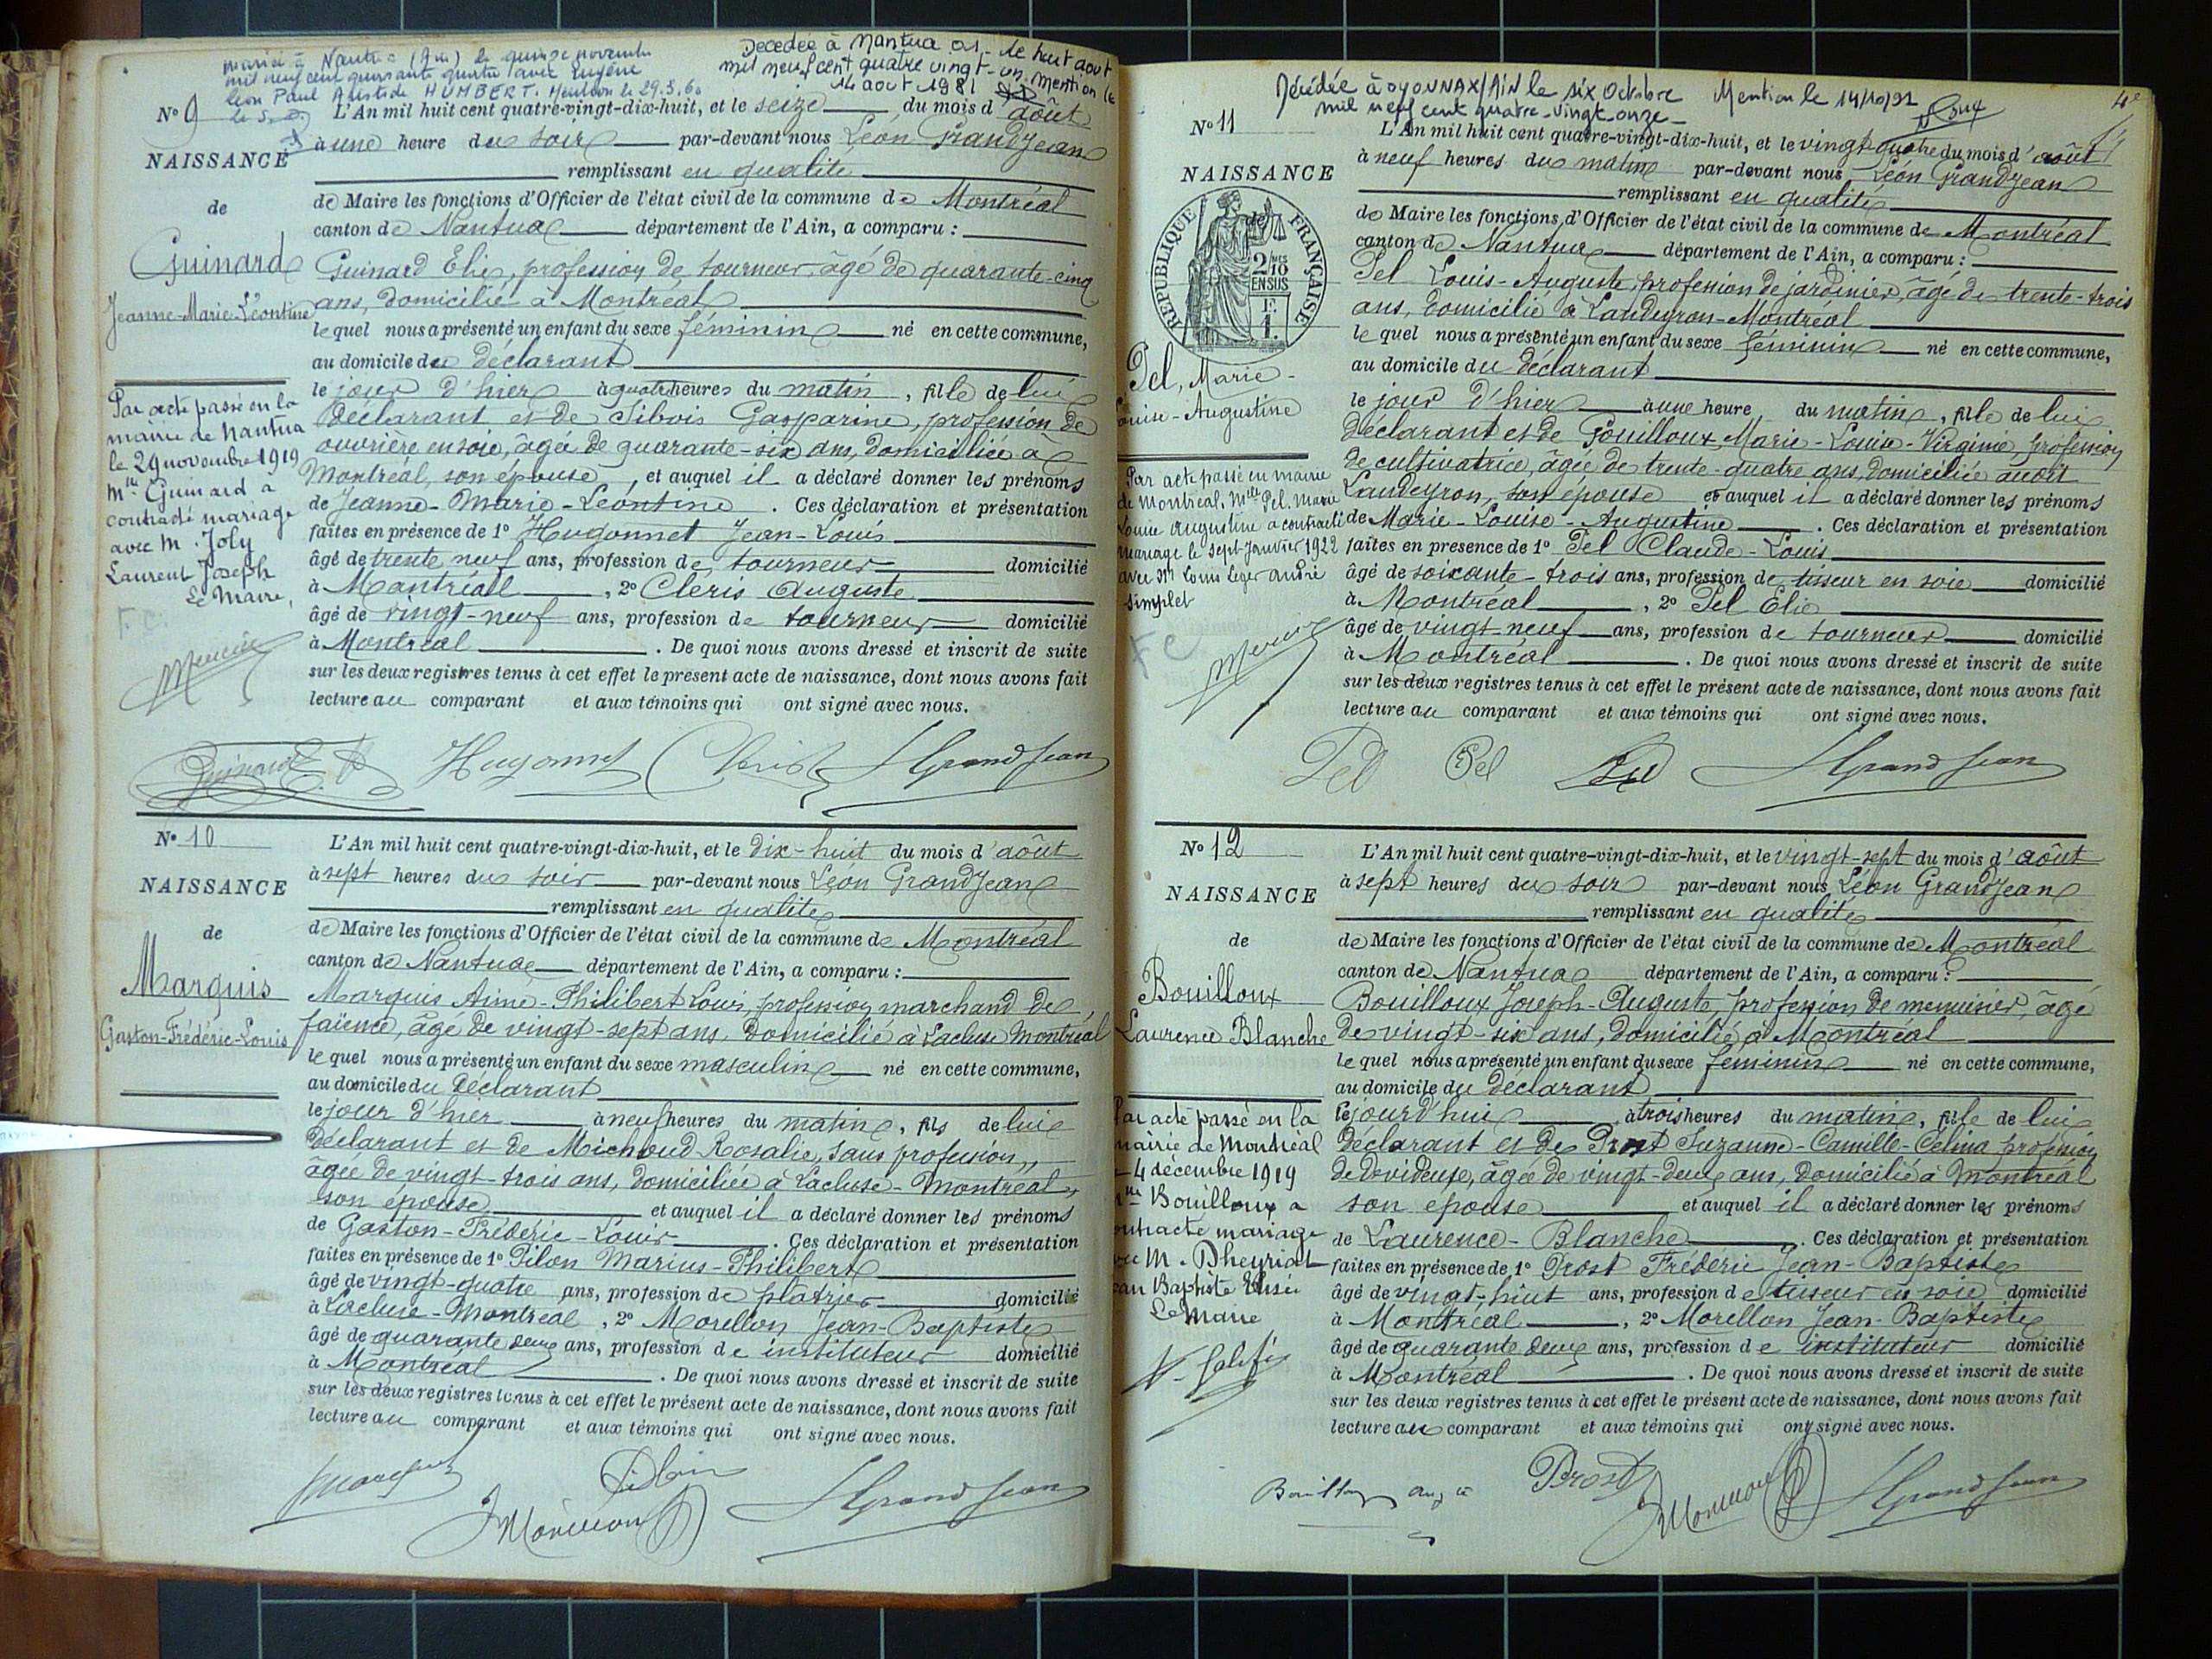 marié à Nantua (Ain) le quinze novembre
mil neuf cent quarante quatre avec Eugène
Léon Paul Aristide HUMBERT. Mention le 29.3.60
Décédée à Nantua 01 - le huit aout
mil neuf cent quatre vingt-un. mention le
14 aout 1981
N° 9
NAISSANCE
de
Guinard
Jeanne-Marie-Léontine
Par acte passé en la
mairie de Nantua
le 29 novembre 1919
Mlle Guinard a
contracté mariage
avec M. Joly
Laurent Joseph
Le Maire,
F.C.
L'An mil huit cent quatre-vingt-dix-huit, et le seize du mois d'août
à une heure du soir par-devant nous Léon Grandjean
remplissant en qualité
de Maire les fonctions d'Officier de l'état civil de la commune de Montréal
canton de Nantua département de l'Ain, a comparu :
Guinard Élie, profession de tourneur, âgé de quarante-cinq
ans, domicilié à Montréal
lequel nous a présenté un enfant du sexe féminin né en cette commune,
au domicile du déclarant
le jour d'hier à quatre heures du matin, fille de lui
déclarant et de Sibois Gasparine, profession de
ouvrière en soie, âgée de quarante-six ans, domiciliée à
Montréal, son épouse, et auquel il a déclaré donner les prénoms
de Jeanne-Marie-Léontine. Ces déclaration et présentation
faites en présence de 1° Hugonnet Jean-Louis
âgé de trente neuf ans, profession de tourneur domicilié
à Montréal, 2° Cléris Auguste
âgé de vingt-neuf ans, profession de tourneur domicilié
à Montréal. De quoi nous avons dressé et inscrit de suite
sur les deux registres tenus à cet effet le présent acte de naissance, dont nous avons fait
lecture au comparant et aux témoins qui ont signé avec nous.
Guinard E. Hugonnet Cléris LGrandjean
N° 10
NAISSANCE
de
Marquis
Gaston-Frédéric-Louis
L'An mil huit cent quatre-vingt-dix-huit, et le dix-huit du mois d'août
à sept heures du soir par-devant nous Léon Grandjean
remplissant en qualité
de Maire les fonctions d'Officier de l'état civil de la commune de Montréal
canton de Nantua département de l'Ain, a comparu :
Marquis Aimé-Philibert Louis, profession marchand de
faïence, âgé de vingt-sept ans, domicilié à Lacluse Montréal
lequel nous a présenté un enfant du sexe masculin né en cette commune,
au domicile du déclarant
le jour d'hier à neuf heures du matin, fils de lui
déclarant et de Michoud Rosalie, sans profession,
âgée de vingt-trois ans, domiciliée à Lacluse-Montréal,
son épouse et auquel il a déclaré donner les prénoms
de Gaston-Frédéric-Louis. Ces déclaration et présentation
faites en présence de 1° Pilon Marius-Philibert
âgé de vingt-quatre ans, profession de plâtrier domicilié
à Lacluse-Montréal, 2° Morellon Jean-Baptiste
âgé de quarante deux ans, profession de instituteur domicilié
à Montréal. De quoi nous avons dressé et inscrit de suite
sur les deux registres tenus à cet effet le présent acte de naissance, dont nous avons fait
lecture au comparant et aux témoins qui ont signé avec nous.
Marquis Pilon
JMorellon LGrandjean
4e
Décédée à OYONNAX/AIN le six Octobre Mention le 14/10/91
mil neuf cent quatre-vingt-onze
N° 11
NAISSANCE
de
REPUBLIQUE FRANÇAISE
2/10
EN SUS
F.
1.
Pel, Marie-
Louise-Augustine
Par acte passé en mairie
de Montréal, Mlle Pel Marie
Louise Augustine a contracté
mariage le sept Janvier 1922
avec Mr Louis Leger André
Simplet
FC
L'An mil huit cent quatre-vingt-dix-huit, et le vingt-quatre du mois d'août
à neuf heures du matin par-devant nous Léon Grandjean
remplissant en qualité
de Maire les fonctions d'Officier de l'état civil de la commune de Montréal
canton de Nantua département de l'Ain, a comparu :
Pel Louis-Auguste, profession de jardinier, âgé de trente-trois
ans, domicilié à Landeyron-Montréal
lequel nous a présenté un enfant du sexe féminin né en cette commune,
au domicile du déclarant
le jour d'hier à une heure du matin, fille de lui
déclarant et de Gouilloux Marie-Louise-Virginie, profession
de cultivatrice, âgée de trente-quatre ans, domiciliée audit
Landeyron, son épouse et auquel il a déclaré donner les prénoms
de Marie-Louise-Augustine. Ces déclaration et présentation
faites en présence de 1° Pel Claude-Louis
âgé de soixante-trois ans, profession de tisseur en soie domicilié
à Montréal, 2° Pel Élie
âgé de vingt-neuf ans, profession de tourneur domicilié
à Montréal. De quoi nous avons dressé et inscrit de suite
sur les deux registres tenus à cet effet le présent acte de naissance, dont nous avons fait
lecture au comparant et aux témoins qui ont signé avec nous.
Pel Pel Pel LGrandjean
N° 12
NAISSANCE
de
Bouilloux
Laurence Blanche
Par acte passé en la
mairie de Montréal
le 4 décembre 1919
Mlle Bouilloux a
contracté mariage
avec M. Dheyriat
Jean Baptiste Elisée
Le Maire
L'An mil huit cent quatre-vingt-dix-huit, et le vingt-sept du mois d'août
à sept heures du soir par-devant nous Léon Grandjean
remplissant en qualité
de Maire les fonctions d'Officier de l'état civil de la commune de Montréal
canton de Nantua département de l'Ain, a comparu :
Bouilloux Joseph-Auguste, profession de menuisier, âgé
de vingt-six ans, domicilié à Montréal
lequel nous a présenté un enfant du sexe féminin né en cette commune,
au domicile du déclarant
le jourd'hui à trois heures du matin, fille de lui
déclarant et de Prost Suzanne-Camille-Célina profession
de dévideuse, âgée de vingt-deux ans, domicilié à Montréal
son épouse et auquel il a déclaré donner les prénoms
de Laurence-Blanche. Ces déclaration et présentation
faites en présence de 1° Prost Frédéric Jean-Baptiste
âgé de vingt-huit ans, profession de tisseur en soie domicilié
à Montréal, 2° Morellon Jean-Baptiste
âgé de quarante deux ans, profession de instituteur domicilié
à Montréal. De quoi nous avons dressé et inscrit de suite
sur les deux registres tenus à cet effet le présent acte de naissance, dont nous avons fait
lecture au comparant et aux témoins qui ont signé avec nous.
Bouilloux aug Prost JMorellon LGrandjean